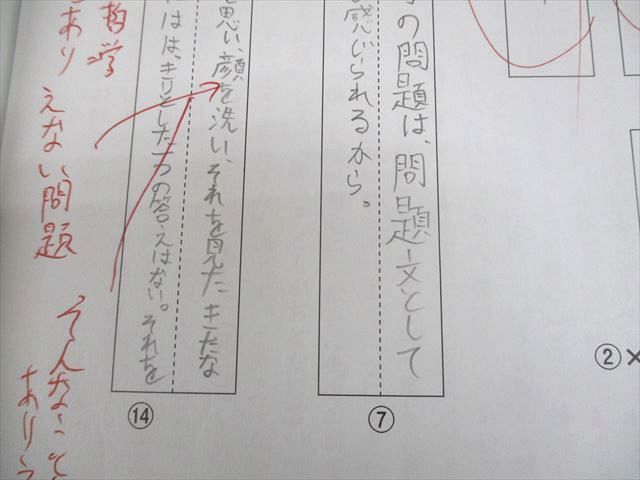 の問題は、問題文として
感じられるから。
⑦
②×
を思い、顔を洗い、それを見たきたな
はは、きりとした一つの答えはない。それを
⑭
哲学
あり
えない問題
そんなこと
ありえ